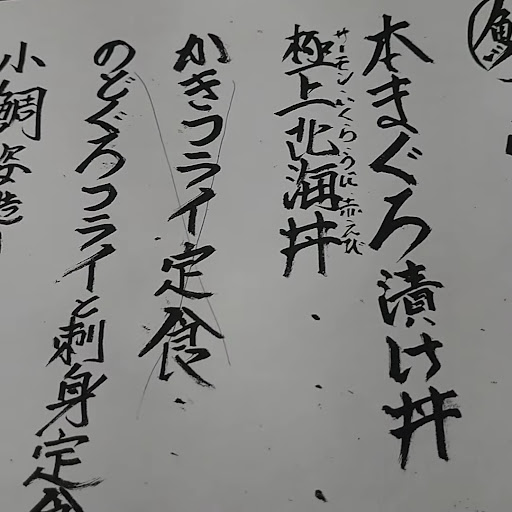 本まぐろ漬け丼
サーモン いくら うに 赤えび
極上北海丼
かきフライ定食
のどぐろフライと刺身定食
小鯛姿造り